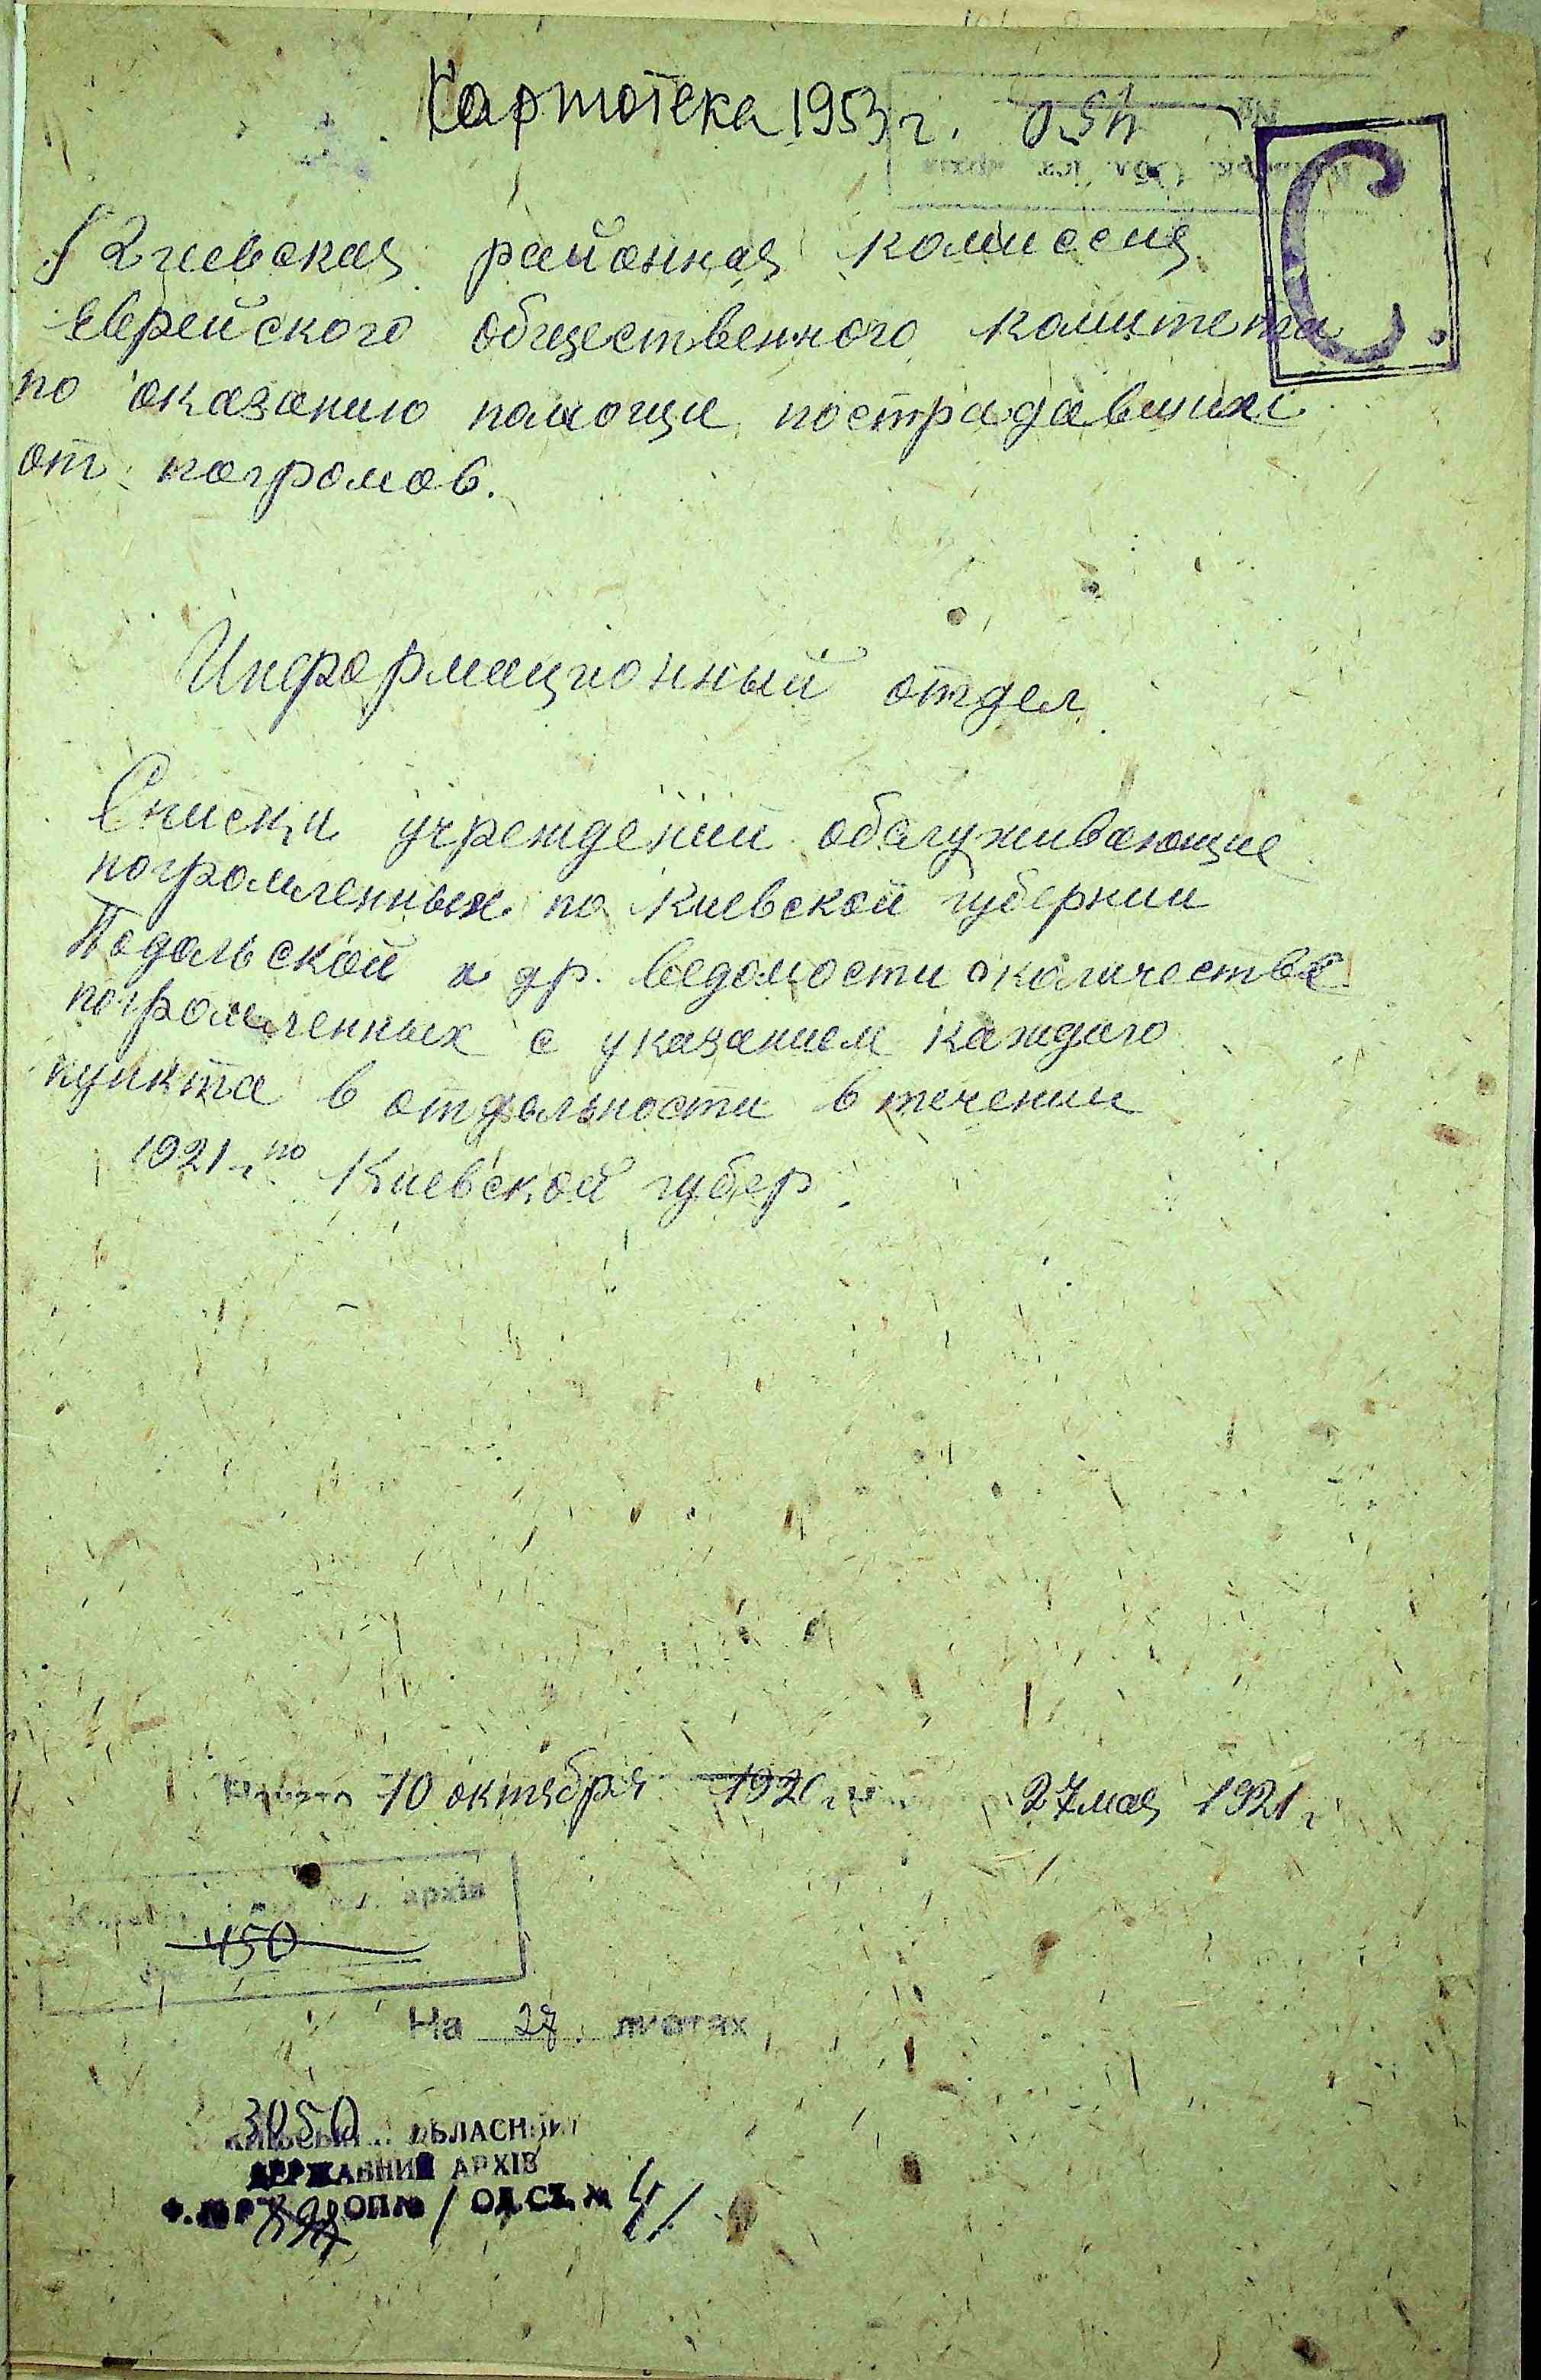 Картотека 1953 г.
С.
Киевская районная комиссия
Еврейского общественного комитета
по оказанию помощи пострадавших
от погромов.
Информационный отдел
Списки учреждений обслуживающие
погромленных по Киевской губернии
Подольской и др. Ведомости о количестве
погромленных с указанием каждого
пункта в отдельности в течении
1921 г. по Киевской губер.
10 октября 1920 г. 27 мая 1921 г.
архів
450
На 27 листах
3050
ОБЛАСНИЙ
ДЕРЖАВНИЙ АРХІВ
Ф. № Р ОП № 1 ОД. СХ. № 41